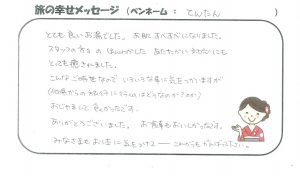 旅の幸せメッセージ (ペンネーム : てんてん )
とても良いお湯でした。お肌すべすべになりました。
スタッフの方々の ほんわかした あたたかい 対応にも
とても癒されました。
こんなご時世なので いろいろな事に気をつかいますが
おじゃまして良かったです。
ありがとうございました。お食事もおいしかったです。
みなさまも お体に 気をつけて これからもがんばって下さい。